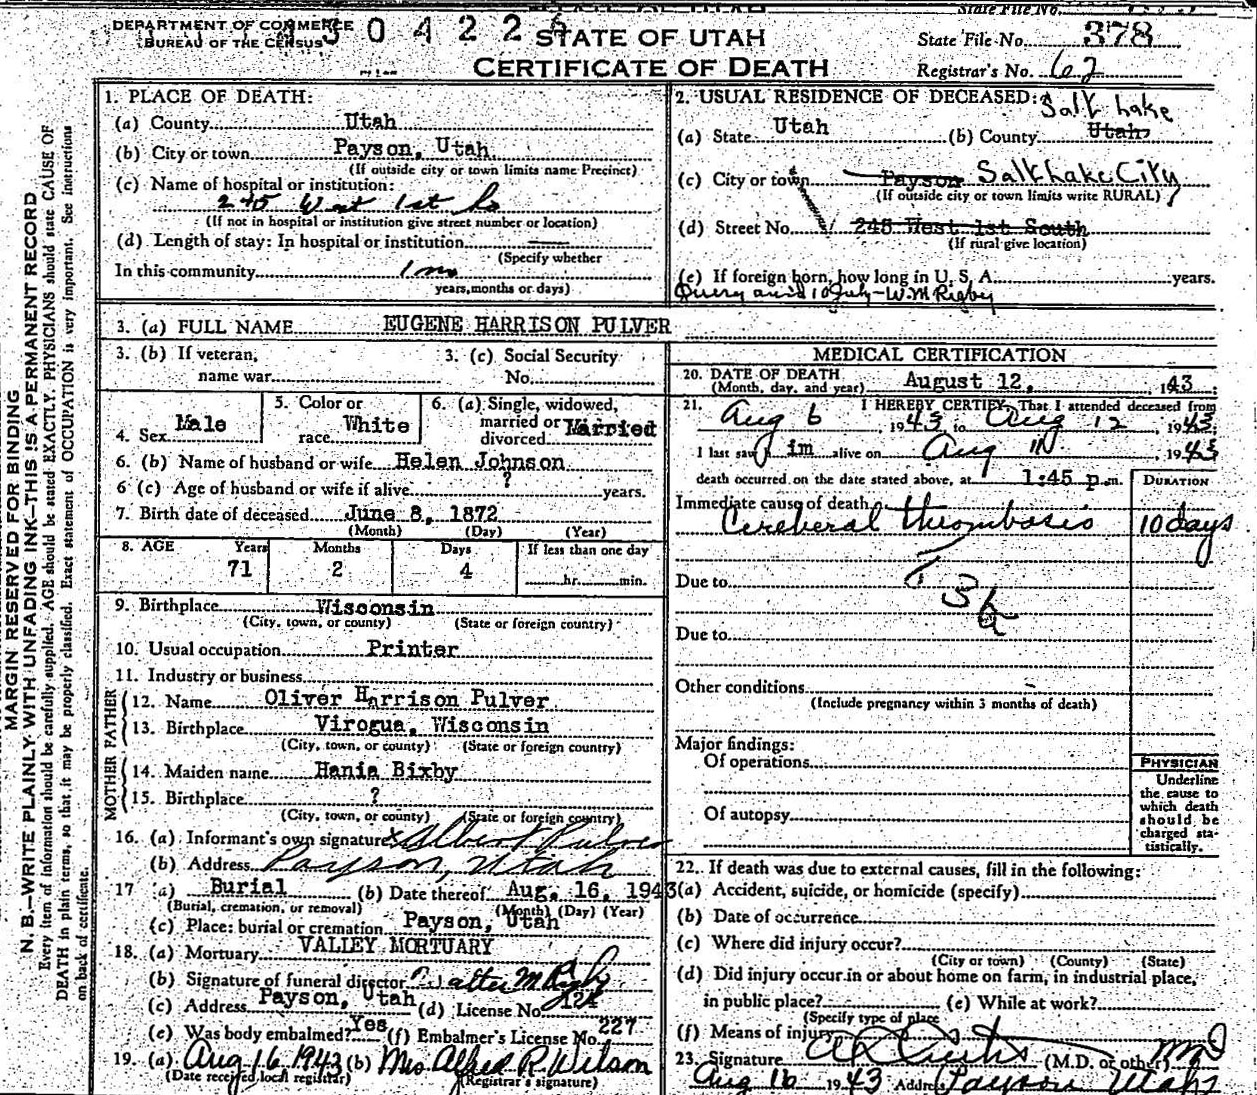 DEPARTMENT OF COMMERCE
BUREAU OF THE CENSUS
3 0 4 2 2
STATE OF UTAH
CERTIFICATE OF DEATH
State File No. 378
Registrar's No. 62
MARGIN RESERVED FOR BINDING
N. B.—WRITE PLAINLY WITH UNFADING INK—THIS IS A PERMANENT RECORD
Every item of information should be carefully supplied. AGE should be stated EXACTLY. PHYSICIANS should state CAUSE OF
DEATH in plain terms, so that it may be properly classified. Exact statement of OCCUPATION is very important. See instructions
on back of certificate.
1. PLACE OF DEATH:
(a) County Utah
(b) City or town Payson, Utah
(If outside city or town limits name Precinct)
(c) Name of hospital or institution:
245 West 1st So
(If not in hospital or institution give street number or location)
(d) Length of stay: In hospital or institution
(Specify whether
In this community 1 mo
years, months or days)
2. USUAL RESIDENCE OF DECEASED:
(a) State Utah (b) County Utah Salt Lake
(c) City or town Payson Salt Lake City
(If outside city or town limits write RURAL)
(d) Street No. 245 West 1st South
(If rural give location)
(e) If foreign born, how long in U. S. A. years.
Query July - W.M Rigby
3. (a) FULL NAME EUGENE HARRISON PULVER
3. (b) If veteran, name war
3. (c) Social Security No.
4. Sex Male
5. Color or race White
6. (a) Single, widowed, married or divorced Married
6. (b) Name of husband or wife Helen Johnson
6 (c) Age of husband or wife if alive ? years.
7. Birth date of deceased June 8, 1872
(Month) (Day) (Year)
8. AGE Years Months Days If less than one day
71 2 4 hr. min.
9. Birthplace Wisconsin
(City, town, or county) (State or foreign country)
10. Usual occupation Printer
11. Industry or business
FATHER
12. Name Oliver Harrison Pulver
13. Birthplace Virogua, Wisconsin
(City, town, or county) (State or foreign country)
MOTHER
14. Maiden name Hania Bixby
15. Birthplace ?
(City, town, or county) (State or foreign country)
16. (a) Informant's own signature x Albert Pulver
(b) Address Payson, Utah
17 (a) Burial (b) Date thereof Aug. 16, 1943
(Burial, cremation, or removal) (Month) (Day) (Year)
(c) Place: burial or cremation Payson, Utah
18. (a) Mortuary VALLEY MORTUARY
(b) Signature of funeral director Walter M Rigby
(c) Address Payson, Utah (d) License No. 124
(e) Was body embalmed? Yes (f) Embalmer's License No. 227
19. (a) Aug 16, 1943 (b) Mrs Alfred R. Wilson
(Date received local registrar) (Registrar's signature)
MEDICAL CERTIFICATION
20. DATE OF DEATH
(Month, day, and year) August 12, 1943
21. I HEREBY CERTIFY, That I attended deceased from
Aug 6, 1943 to Aug 12, 1943
I last saw him alive on Aug 1943
death occurred on the date stated above, at 1:45 p.m.
DURATION
Immediate cause of death
Cereberal thrombosis 10 days
Due to
Due to
Other conditions
(Include pregnancy within 3 months of death)
Major findings:
Of operations
Of autopsy
PHYSICIAN
Underline
the cause to
which death
should be
charged sta-
tistically.
22. If death was due to external causes, fill in the following:
(a) Accident, suicide, or homicide (specify)
(b) Date of occurrence
(c) Where did injury occur?
(City or town) (County) (State)
(d) Did injury occur in or about home on farm, in industrial place,
in public place? (e) While at work?
(Specify type of place
(f) Means of injury
23. Signature Curtis (M.D. or other) MD
Aug 16 1943 Address Payson Utah